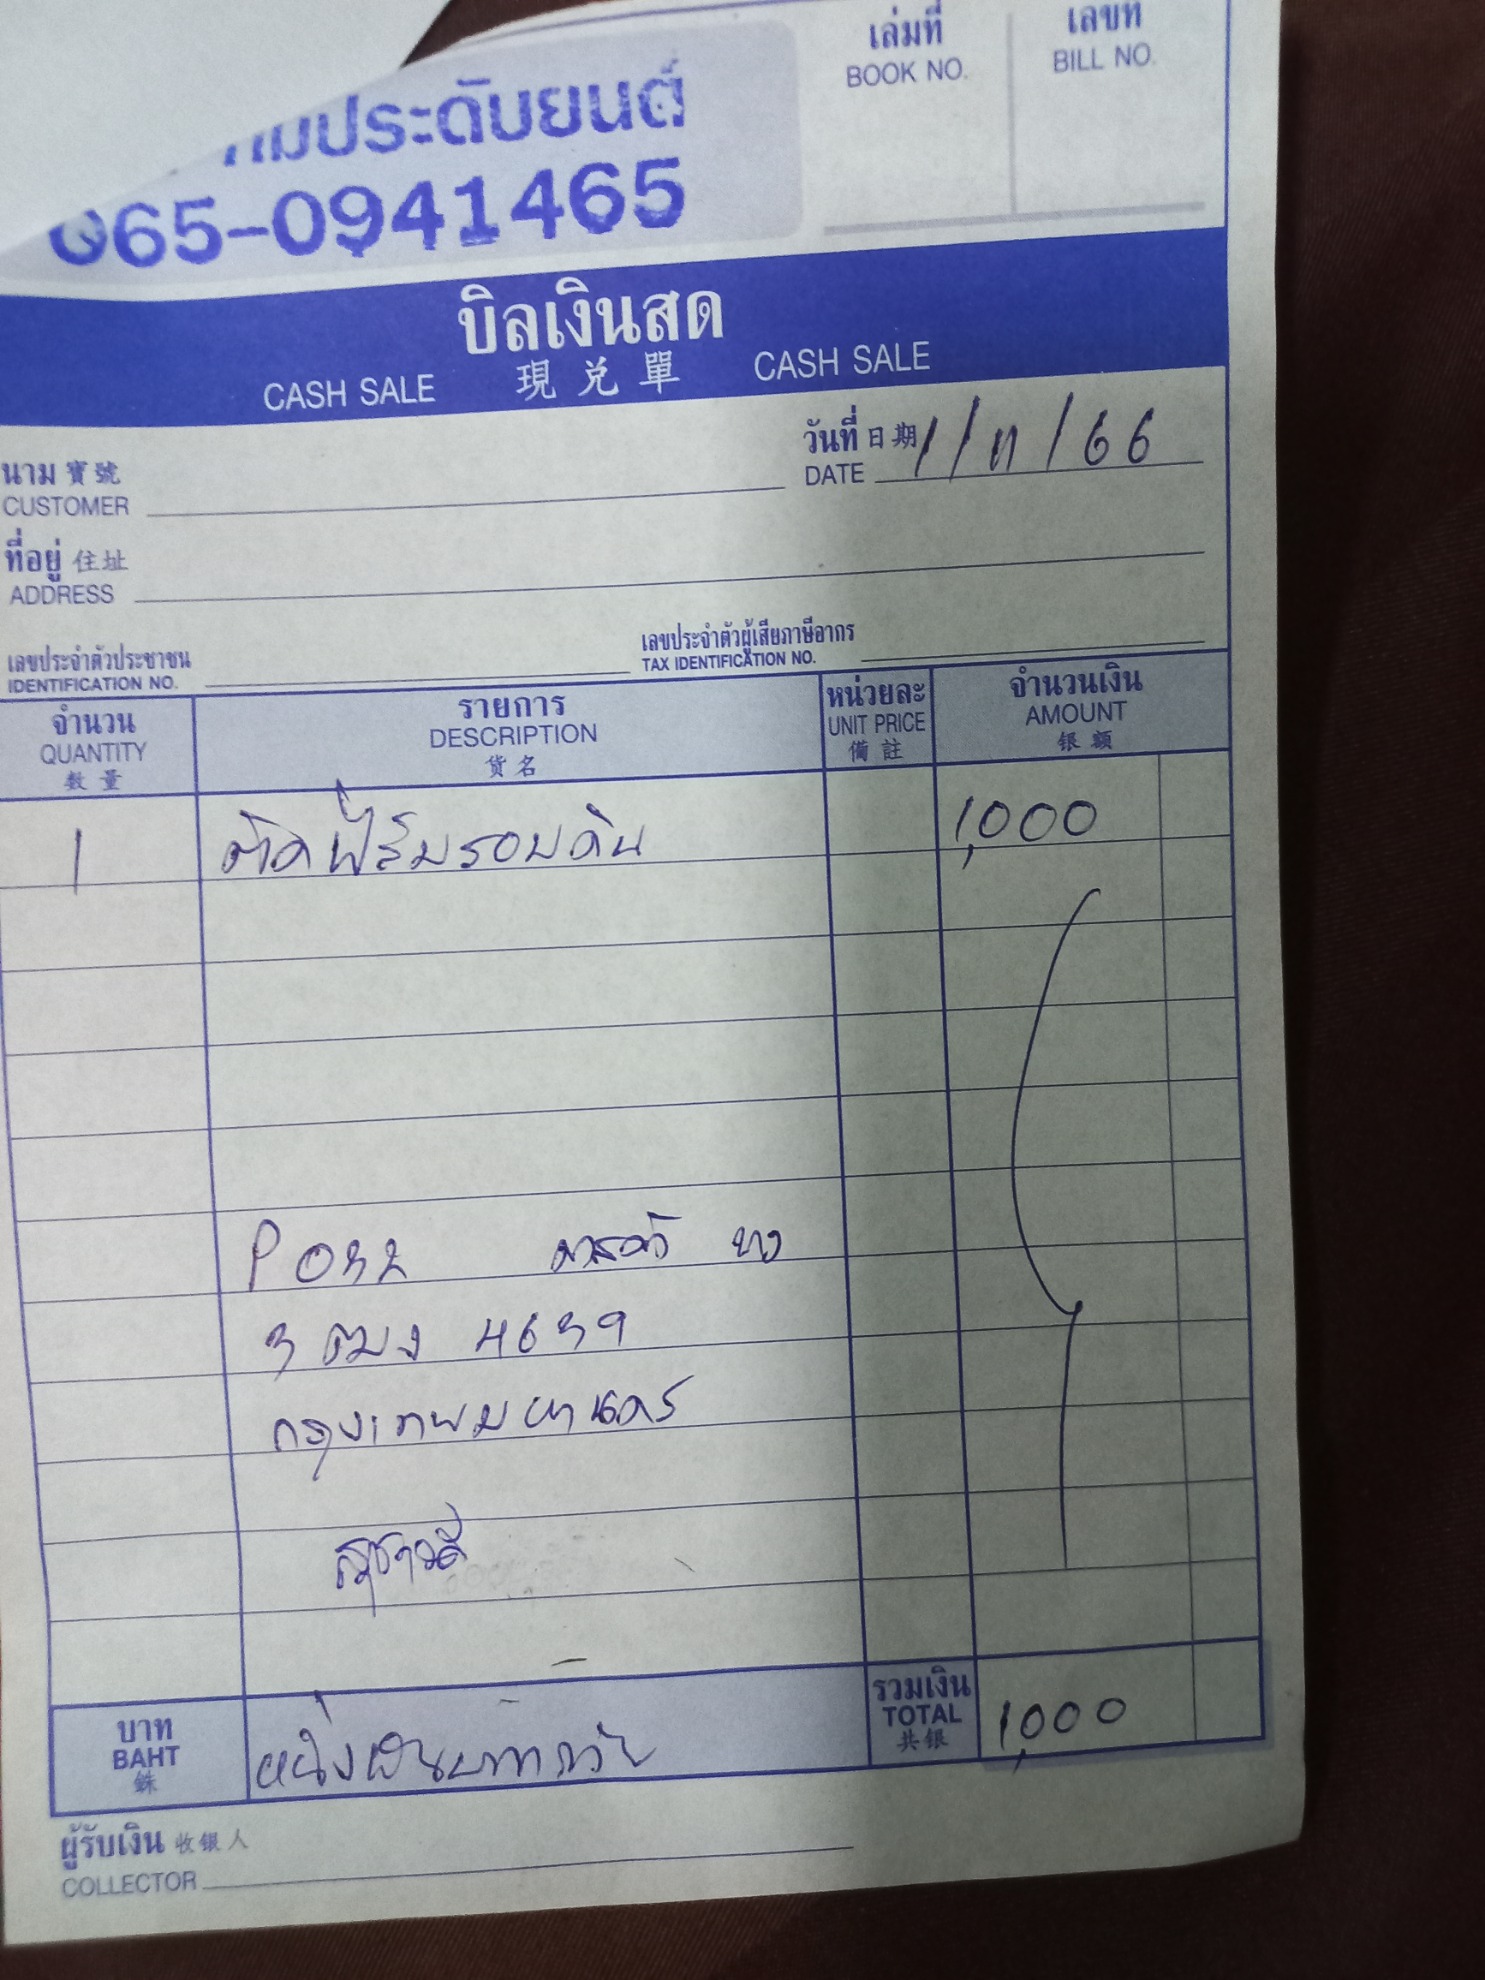 เล่มที่ เลขที่
BOOK NO. BILL NO.
ประดับยนต์
065-0941465
บิลเงินสด
CASH SALE 現兑單 CASH SALE
วันที่ 日期 1/11/66
DATE
นาม 寶號
CUSTOMER
ที่อยู่ 住址
ADDRESS
เลขประจำตัวประชาชน เลขประจำตัวผู้เสียภาษีอากร
IDENTIFICATION NO. TAX IDENTIFICATION NO.
จำนวน รายการ หน่วยละ จำนวนเงิน
QUANTITY DESCRIPTION UNIT PRICE AMOUNT
数量 货名 備註 银额
1 ติดฟิล์มรอบคัน 1,000
P032
3 ฒมง 4639
กรุงเทพมหานคร
สุชาวดี
บาท หนึ่งพันบาทถ้วน รวมเงิน 1,000
BAHT TOTAL
銖 共银
ผู้รับเงิน 收银人
COLLECTOR